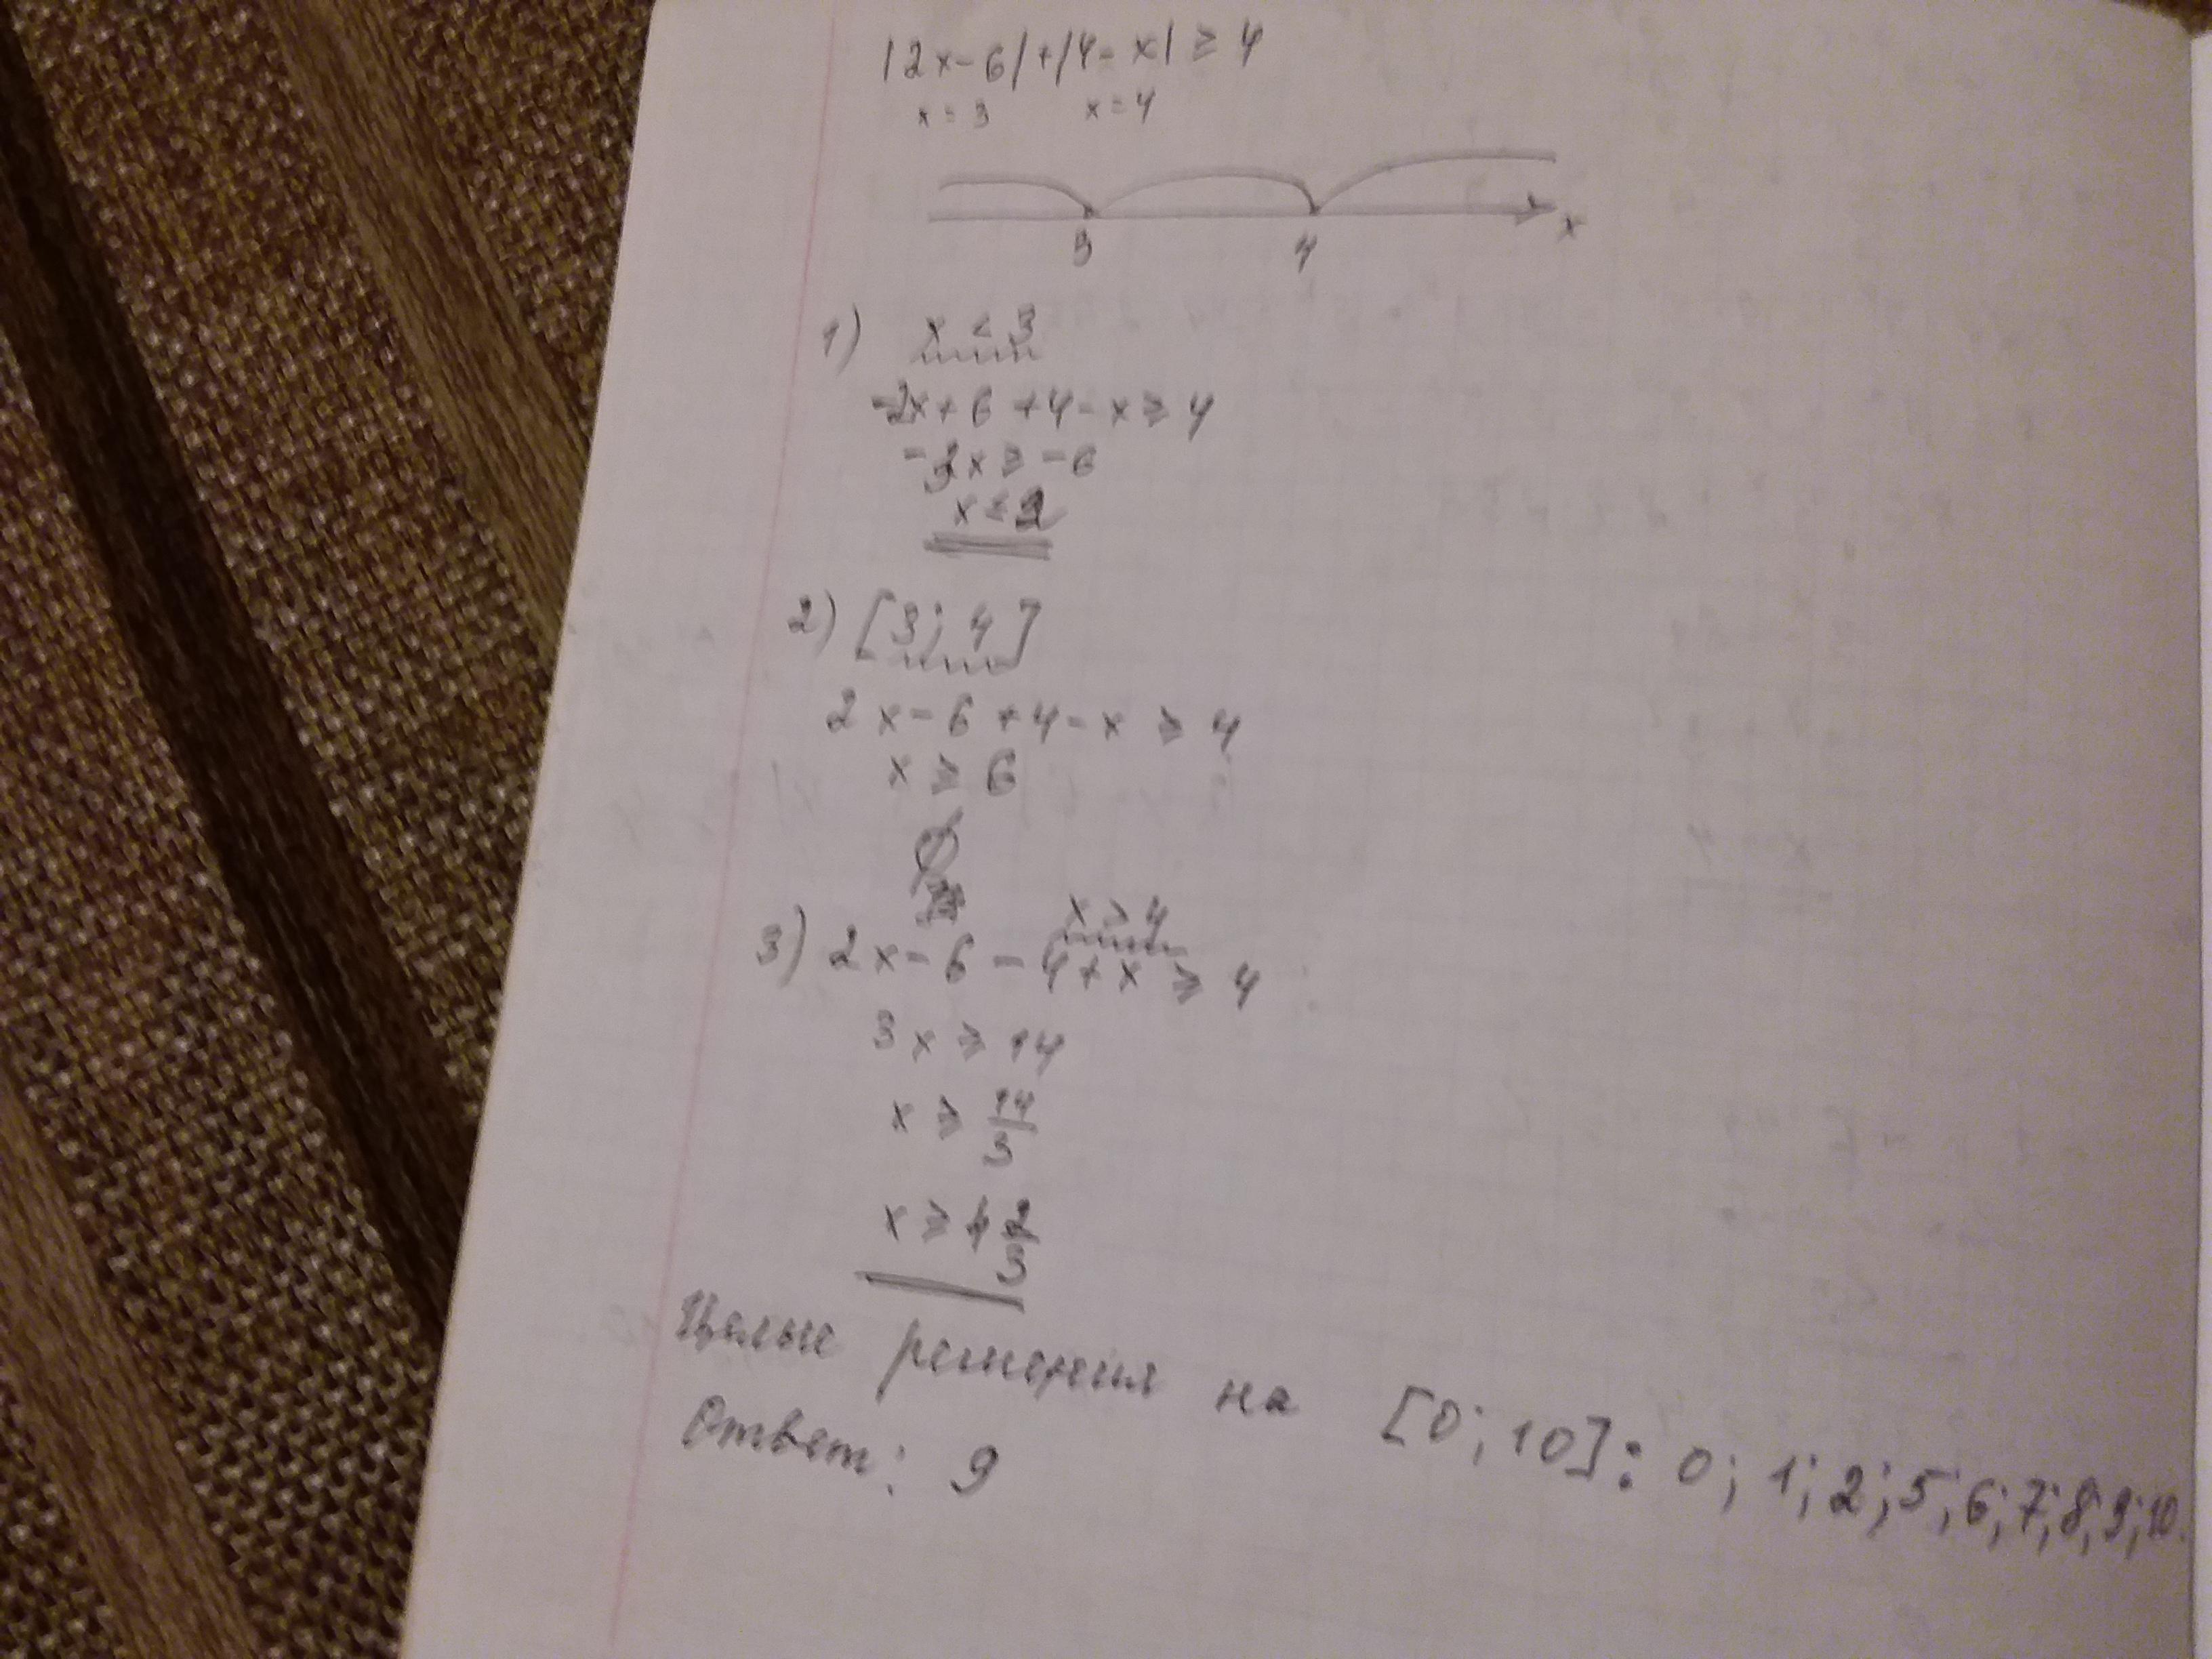 |2x-6|+|4-x| ≥ 4
x=3 x=4
3 4 x
1) x < 3
-2x+6+4-x ≥ 4
-3x ≥ -6
x ≤ 2
2) [3; 4]
2x-6+4-x ≥ 4
x ≥ 6
∅
x > 4
3) 2x-6-4+x ≥ 4
3x ≥ 14
x ≥ 14/3
x ≥ 4 2/3
Целые решения на [0; 10]: 0; 1; 2; 5; 6; 7; 8; 9; 10.
Ответ: 9